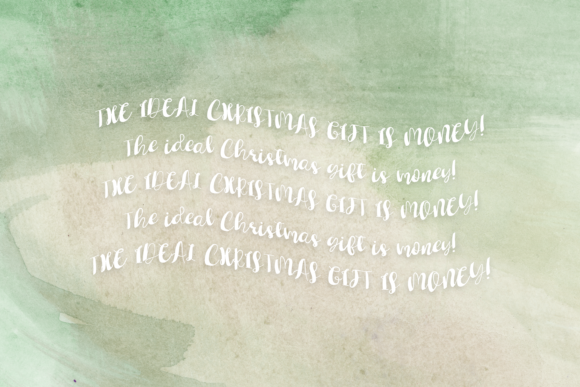 THE IDEAL CHRISTMAS GIFT IS MONEY!
The ideal Christmas gift is money!
THE IDEAL CHRISTMAS GIFT IS MONEY!
The ideal Christmas gift is money!
THE IDEAL CHRISTMAS GIFT IS MONEY!